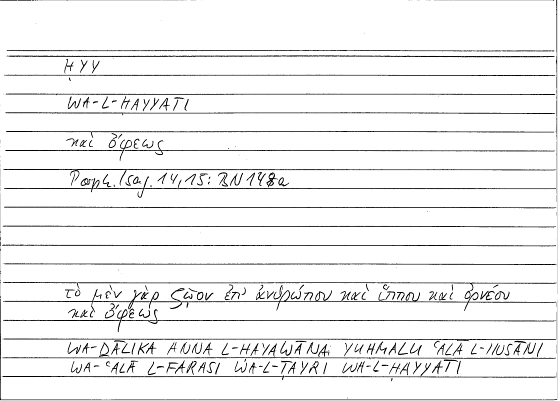 ḤYY
WA-L-ḤAYYATI
καὶ ὄφεως
Porph. Isag. 14,15: BN 148a
τὸ μὲν γὰρ ζῷον ἐπ' ἀνθρώπου καὶ ἵππου καὶ ὀρνέου
καὶ ὄφεως
WA-ḎĀLIKA ANNA L-ḤAYAWĀNA YUḤMALU ʿALĀ L-INSĀNI
WA-ʿALĀ L-FARASI WA-L-ṬAYRI WA-L-ḤAYYATI